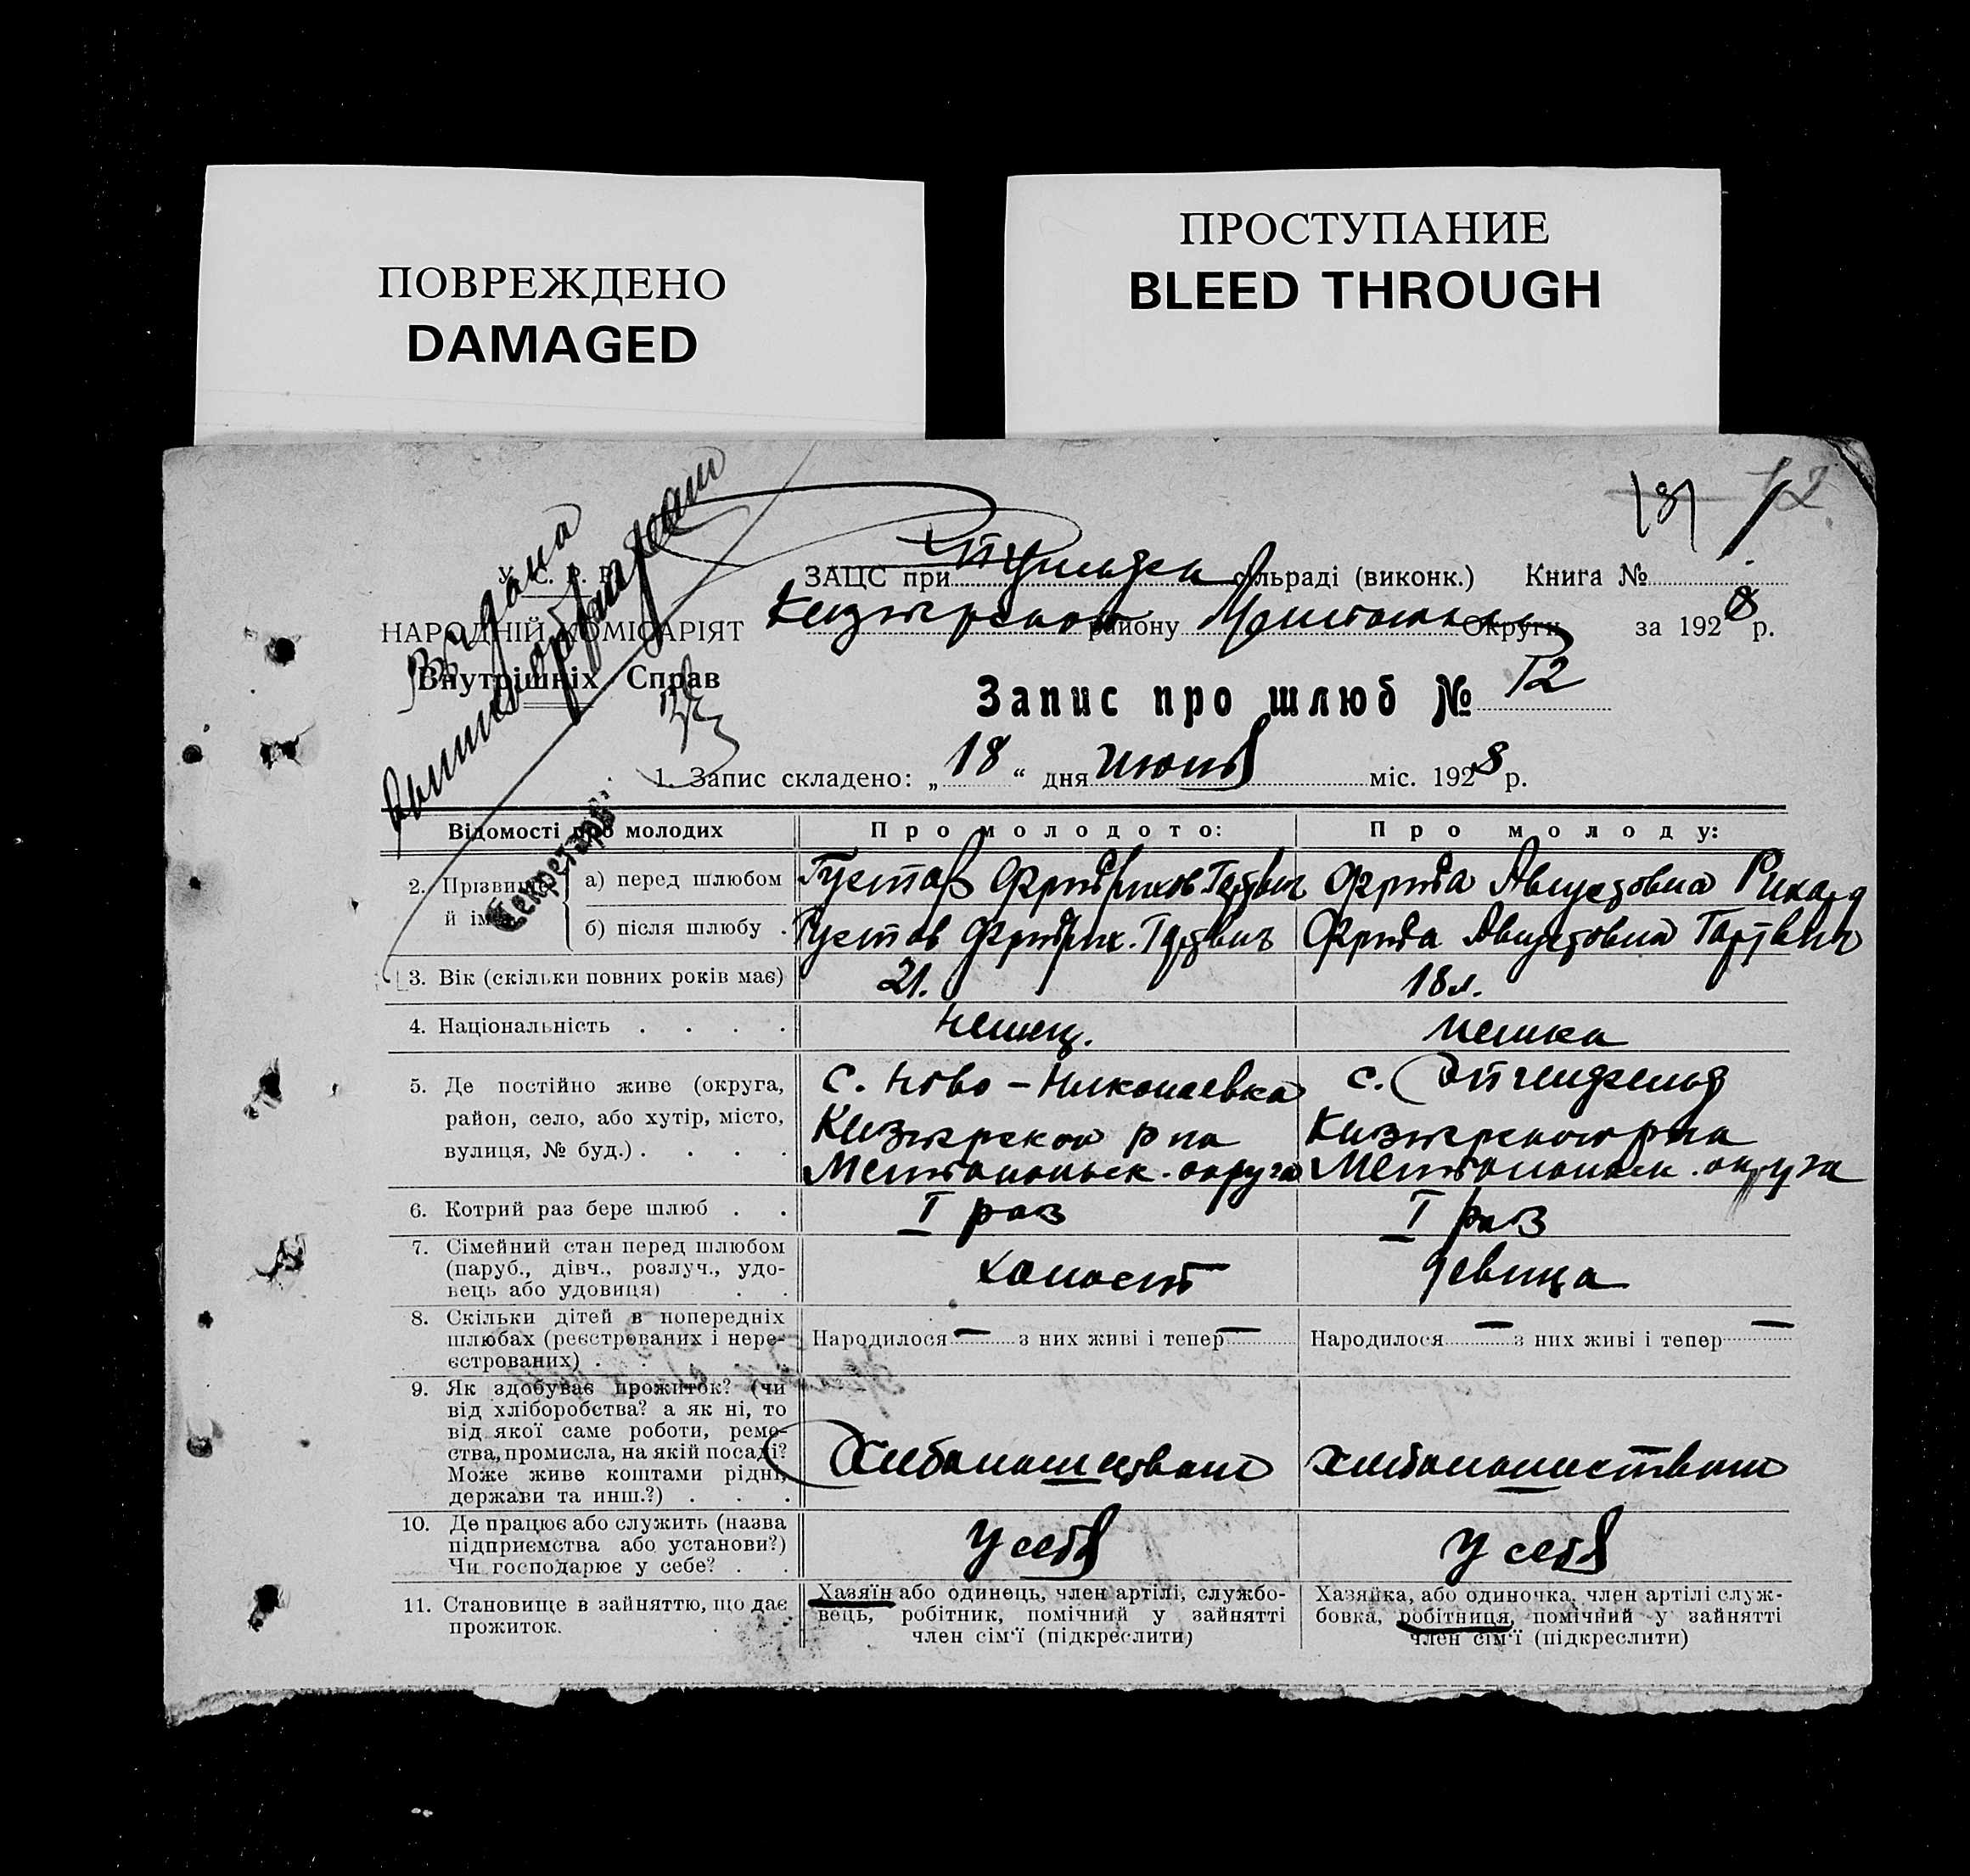 ПОВРЕЖДЕНО
DAMAGED
ПРОСТУПАНИЕ
BLEED THROUGH
У. С. Р. Р.
НАРОДНІЙ КОМІСАРІЯТ
Внутрішніх Справ
Выдана
Секретарь:
ЗАЦС при сільраді (виконк.) Книга №
району Округи за 1928 р.
Запис про шлюб № 12
1. Запис складено: „18“ дня июня міс. 1928 р.
Відомості про молодих Про молодого: Про молоду:
2. Прізвище й ім'я
а) перед шлюбом Густав Фридрихов Гартвиг Фрида Августовна Рихард
б) після шлюбу . Густав Фридрих. Гартвиг Фрида Августовна Гартвиг
3. Вік (скільки повних років має) 21. 18 л.
4. Національність . . . . немец. немка
5. Де постійно живе (округа,
район, село, або хутір, місто,
вулиця, № буд.) . . . .
с. Ново-Николаевка
р на
Мелитопольск. округа
с.
р на
Мелитопольск. округа
6. Котрий раз бере шлюб . . I раз I раз
7. Сімейний стан перед шлюбом
(паруб., дівч., розлуч., удо-
вець або удовиця) . . холост девица
8. Скільки дітей в попередніх
шлюбах (реєстрованих і нере-
єстрованих) . . . . .
Народилося — з них живі і тепер — Народилося — з них живі і тепер —
9. Як здобуває прожиток? (чи
від хліборобства? а як ні, то
від якої саме роботи, реме-
ства, промисла, на якій посаді?
Може живе коштами рідні,
держави та инш.?) . . .
хлебопашеством хлебопашеством
10. Де працює або служить (назва
підприємства або установи?)
Чи господарює у себе? . .
у себя у себя
11. Становище в зайняттю, що дає
прожиток.
Хазяїн або одинець, член артілі, службо-
вець, робітник, помічний у зайнятті
член сім'ї (підкреслити)
Хазяйка, або одиночка, член артілі служ-
бовка, робітниця, помічний у зайнятті
член сім'ї (підкреслити)